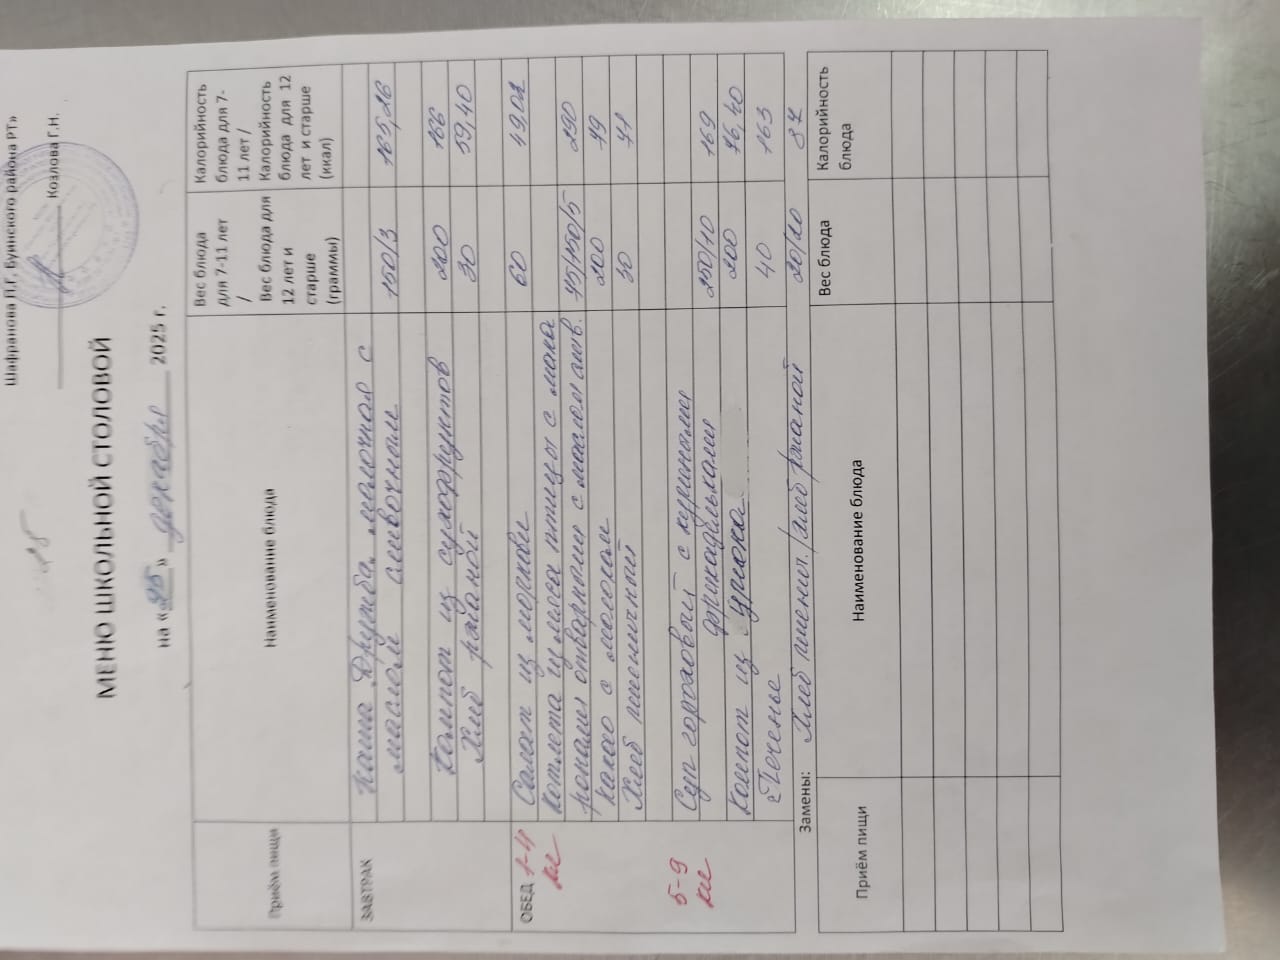 Шафранова П.Г. Буинского района РТ»
Козлова Г.Н.
МЕНЮ ШКОЛЬНОЙ СТОЛОВОЙ
на «25» декабря 2025 г.
Приём пищи
Наименование блюда
Вес блюда для 7-11 лет / Вес блюда для 12 лет и старше (граммы)
Калорийность блюда для 7-11 лет / Калорийность блюда для 12 лет и старше (ккал)
ЗАВТРАК
Каша Дружба молочная с
маслом сливочным 150/3 165,26
Компот из сухофруктов 200 166
Хлеб ржаной 30 59,40
ОБЕД 1-4 кл
Салат из моркови 60 49,02
Котлета из мяса птицы с мака
ронами отварными с маслом слив. 75/150/5 290
какао с молоком 200 79
Хлеб пшеничный 30 71
5-9 кл
Суп гороховый с куриными
фрикадельками 250/10 169
Компот из урюка 200 76,40
Печенье 40 163
Хлеб пшенич./хлеб ржаной 20/20 87
Замены:
Приём пищи
Наименование блюда
Вес блюда
Калорийность блюда